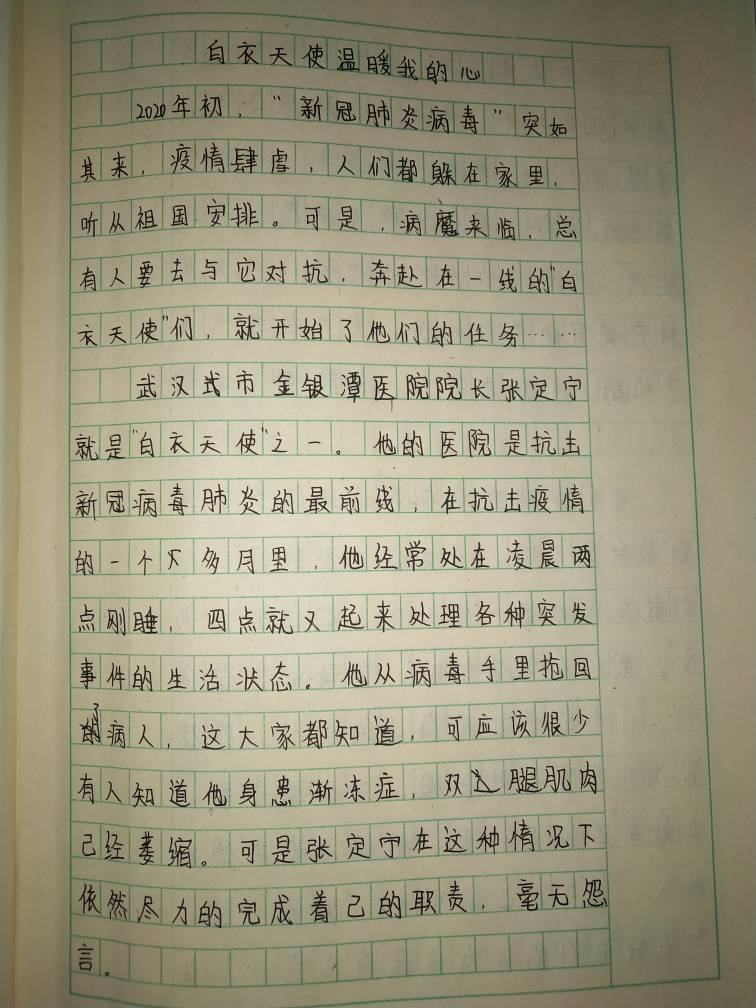 白衣天使温暖我的心
2020年初，“新冠肺炎病毒”突如
其来，疫情肆虐，人们都躲在家里，
听从祖国安排。可是，病魔来临，总
有人要去与它对抗，奔赴在一线的“白
衣天使”们，就开始了他们的任务……
武汉式市金银潭医院院长张定宁
就是“白衣天使”之一。他的医院是抗击
新冠病毒肺炎的最前线，在抗击疫情
的一个多月里，他经常处在凌晨两
点刚睡，四点就又起来处理各种突发
事件的生活状态。他从病毒手里抢回
了病人，这大家都知道，可应该很少
有人知道他身患渐冻症，双腿肌肉
已经萎缩。可是张定宁在这种情况下
依然尽力的完成着己的职责，毫无怨
言。